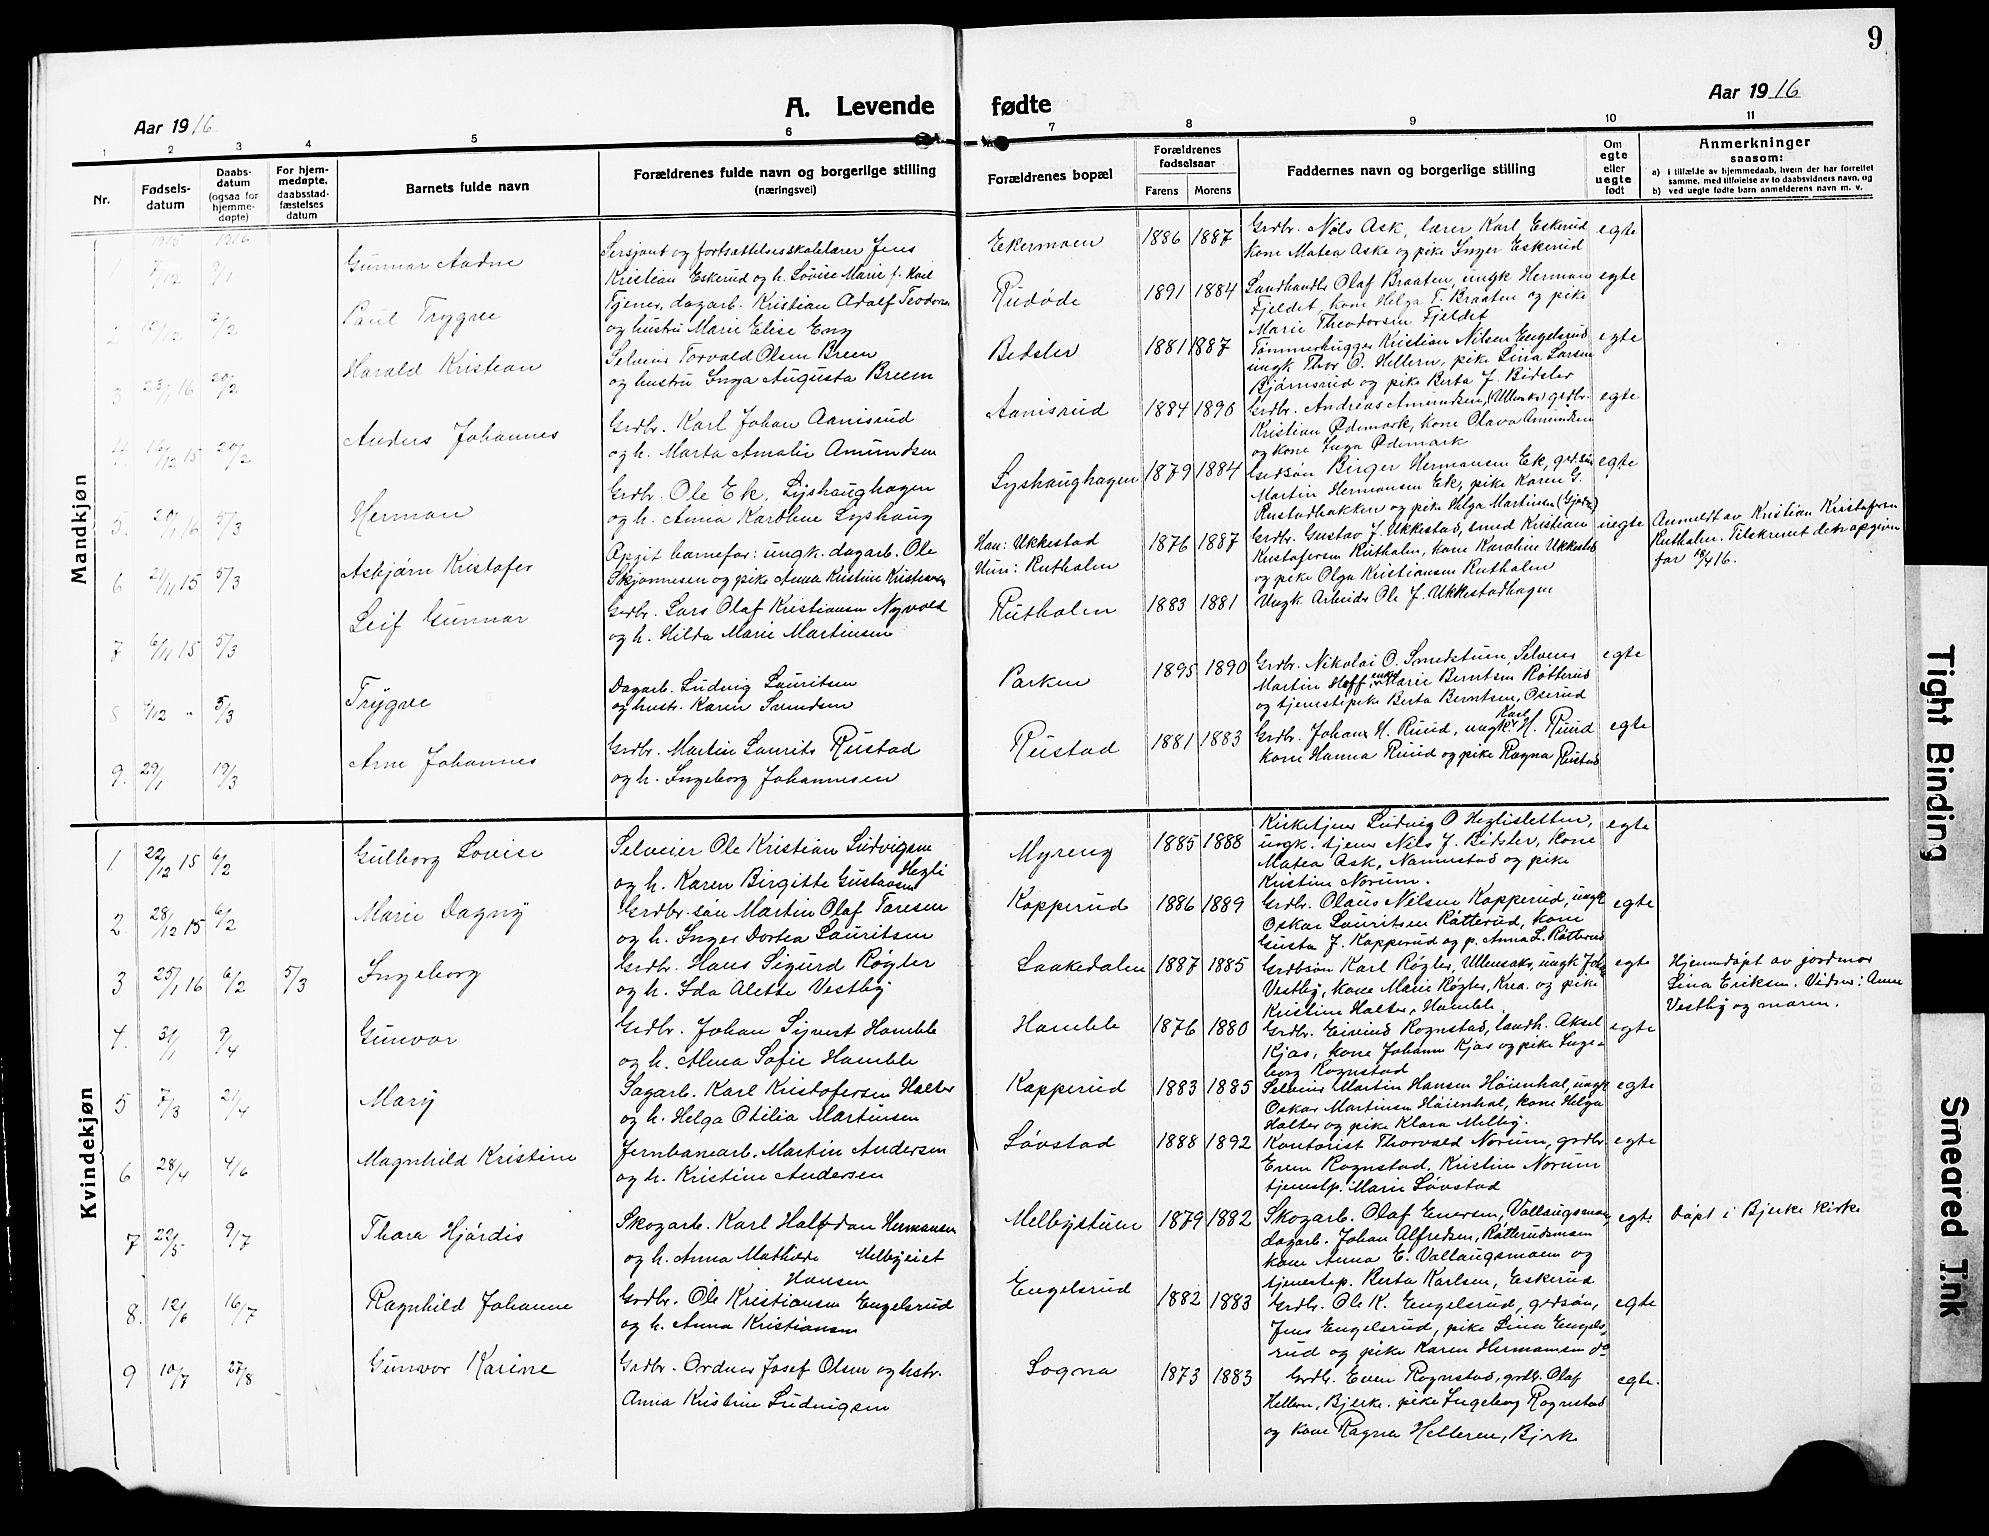 9
Aar 1916
A. Levende fødte
Aar 1916
1 2 3 4 5 6 7 8 9 10 11
Nr.
Fødsels-
datum
Daabs-
datum
(ogsaa for
hjemme-
døpte)
For hjem-
medøpte,
daabsstad-
fæstelses
datum
Barnets fulde navn
Forældrenes fulde navn og borgerlige stilling
(næringsvei)
Forældrenes bopæl
Forældrenes
fødselsaar
Farens Morens
Faddernes navn og borgerlige stilling
Om
egte
eller
uegte
født
Anmerkninger
saasom:
a) i tilfælde av hjemmedaab, hvem der har forrettet
samme, med tilføielse av to daabsvidners navn, og
b) ved uegte fødte barn anmelderens navn m. v.
Mandkjøn
1915 1916
7/12 9/1
Gunnar Aadne
Sersjant og fortsættelsesskolelærer Jens
Kristian Eskerud og h. Lovise Marie f. Karl
Ekermoen
1886 1887
Grdbr. Nils Ask, lærer Karl Eskerud
kone Matea Aske og pike Inger Eskerud
egte
2 12/12 6/2
Paul Trygve
Tjener, dagarb. Kristian Adolf Teodorsen
og hustru Marie Elise Eng
Rudøde
1891 1884
Landhandler Olaf Braaten, ungk. Herman
Fjeldet, kone Helga T. Braaten og pike
Marie Theodorsen Fjeldet
egte
3 23/1 16 20/2
Harald Kristian
Selveier Torvald Olsen Breen
og hustru Inga Augusta Breen
Bidsler
1881 1887
Tømmerhugger Kristian Nilsen Engelsrud
ungk Thor O. Hellern, pike Lina Larsen
Bjørnsrud og pike Berta J. Bidsler
egte
4 16/12 15 20/2
Anders Johannes
Grdbr. Karl Johan Aanisrud
og h. Marta Amalie Amundsen
Aanisrud
1884 1890
Grdbr. Andreas Amundsen, (Ullensaks) grdbr.
Kristian Ødemark, kone Olava Amundsen
og kone Inga Ødemark
egte
5. 20/1 16 5/3
Herman
Grdbr. Ole Ek, Lyshaughagen
og h. Anna Karoline Lyshaug
Lyshaughagen
1879 1884
Grdsøn Birger Hermansen Ek, grd.søn
Martin Hermansen Ek, pike Karen G.
Rustadbakken og pike Helga Martinsen (Gjødn)
egte
6 21/11 15 5/3
Asbjørn Kristofer
Opgit barnefar: ungk. dagarb. Ole
Skjønnesen og pike Anna Kristine Kristiansen
Han: Ukkestad
Hun: Rutholen
1876 1887
Grdbr. Gustav J. Ukkestad, smed Kristian
Kristofersen Rutholen, kone Karoline Ukkestad
og pike Olga Kristiansen Rutholen
uegte
Anmeldt av Kristian Kristofersen
Rutholen. Tilskrevet den opgivne
far 18/4 16.
7 6/11 15 5/3
Leif Gunnar
Grdbr. Lars Olaf Kristiansen Nyvold
og h. Hilda Marie Martinsen
Rutholen
1883 1881
Ungk. Arbeider Ole J. Ukkestadhagen
8 4/12 " 5/3
Trygve
Dagarb. Ludvig Lauritsen
og hustr. Karen Svendsen
Parken
1895 1890
Grdbr. Nikolai O. Smedstuen, Selveier
Martin Hoff, enke Marie Berntsen Røtterud
og tjenestepike Berta Berntsen, Oserud
egte
9. 29/1 19/3
Arne Johannes
Grdbr. Martin Laurits Rustad
og h. Ingeborg Johannesen
Rustad
1881 1883
Grdbr. Johans H. Ruud, ungk. Karl H. Ruud
kone Hanna Ruud og pike Ragna Rustad
egte
Kvindekjøn
1. 22/12 15 6/2
Gulborg Lovise
Selveier Ole Kristian Ludvigsen
og h. Karen Birgitte Gustavsen Hegli
Myreng
1885 1888
Kirketjener Ludvig O Heglisletten,
ungk. tjener Nils J. Bidsler, kone
Matea Ask, Nannestad og pike
Kristine Norum.
egte
2 28/12 15 6/2
Marie Dagny
Grdbr. søn Martin Olaf Toresen
og h. Inger Dortea Lauritsen
Kopperud
1886 1889
Grdbr. Olaus Nilsen Kopperud, ungk
Oskar Lauritsen Røtterud, kone
Gusta J. Kopperud og p. Anna L. Røtterud
egte
3 25/1 16 6/2 5/3
Ingeborg
Grdbr. Hans Sigurd Røgler
og h. Ida Alette Vestby
Laakedalen
1887 1885
Grdbsøn Karl Røgler, Ullensaks, ungk Johs
Vestby, kone Marie Røgler, Krea. og pike
Kristine Holter, Hamble.
egte
Hjemmedøpt av jordmor
Lina Eriksen. Vidner: Anne
Vestby og moren.
4. 31/1 9/4
Gunvor
Grdbr. Johan Sivert Hamble
og h. Alma Sofie Hamble
Hamble
1876 1880
Grdbr. Eivind Rognstad, landh. Aksel
Kjos, kone Johanne Kjos og pike Inge-
borg Rognstad
egte
5 7/3 21/4
Mary
Sagarb. Karl Kristofersen Holter
og h. Helga Otilia Martinsen
Kopperud
1883 1885
Selveier Martin Hansen Høienhal, ungk
Oskar Martinsen Høienhal, kone Helga
Holter og pike Klara Melby.
egte
6 28/4 4/6
Magnhild Kristine
Jernbanearb. Martin Andersen
og h. Kristine Andersen
Løvstad
1888 1892
Kontorist Thorvald Norum, grdbr.
Even Rognstad, Kristine Norum
tjenestp. Marie Løvstad
egte
7 22/5 9/7
Thora Hjørdis
Skogarb. Karl Halfdan Hermansen
og h. Anna Mathilde Hansen Melbyeiet
Melbystuen
1879 1882
Skogarb. Olaf Enersen, Vollaugsmoen,
dagarb. Johan Alfredsen, Røtterudsmoen
kone Anna E. Vollaugsmoen og
tjenestep. Berta Karlsen, Eskerud
egte
Døpt i Bjerke kirke
8. 12/6 16/7
Ragnhild Johanne
Grdbr. Ole Kristiansen Engelsrud
og h. Anna Kristiansen
Engelsrud
1882 1883
Grdbr. Ole K. Engelsrud, grdsøn,
Jens Engelsrud, pike Lina Engels-
rud og pike Karen Hermansen do
egte
9 10/7 27/8
Gunvor Karine
Grdbr. Ordner Josef Olsen og hstr.
Anna Kristine Ludvigsen
Sogna
1873 1883
Grdbr. Even Rognstad, grdbr. Olaf
Hellern, Bjerke. pike Ingeborg Rognstad
og kone Ragna Helleren, Bjerk
egte.
Tight Binding
Smeared Ink